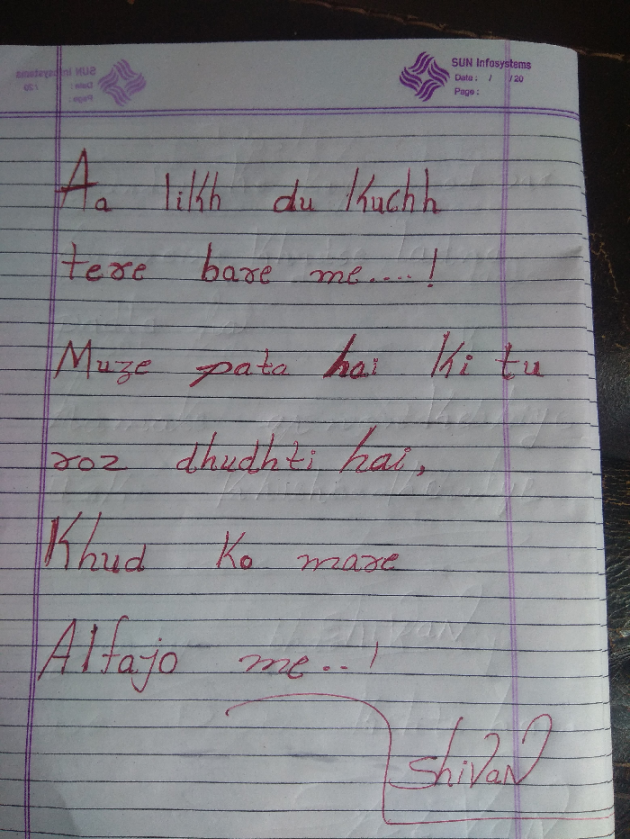 SUN Infosystems
Date : / /20
Page :
Aa likh du Kuchh
tere bare me....!
Muze pata hai Ki tu
roz dhudhti hai,
Khud Ko mare
Alfajo me..!
Shivan